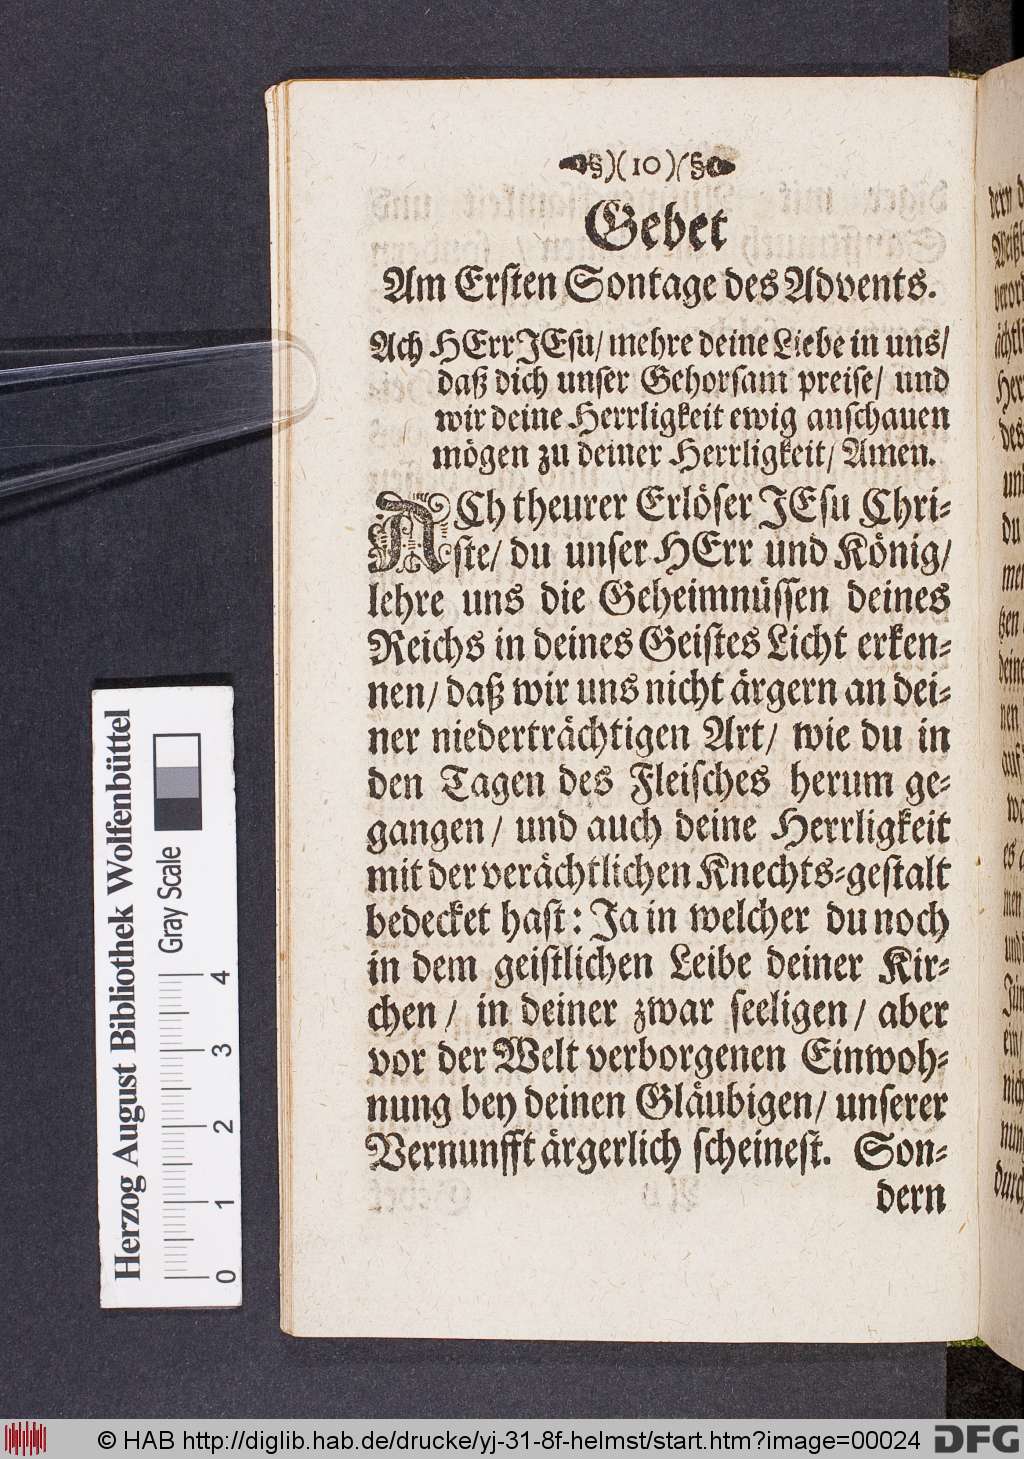 §)(10)(§
Gebet
Am Ersten Sontage des Advents.
Ach HErr JEsu/ mehre deine Liebe in uns/
daß dich unser Gehorsam preise/ und
wir deine Herrligkeit ewig anschauen
mögen zu deiner Herrligkeit/ Amen.
ACh theurer Erlöser JEsu Chri-
ste/ du unser HErr und König/
lehre uns die Geheimnüssen deines
Reichs in deines Geistes Licht erken-
nen/ daß wir uns nicht ärgern an dei-
ner niederträchtigen Art/ wie du in
den Tagen des Fleisches herum ge-
gangen/ und auch deine Herrligkeit
mit der verächtlichen Knechts-gestalt
bedecket hast: Ja in welcher du noch
in dem geistlichen Leibe deiner Kir-
chen/ in deiner zwar seeligen/ aber
vor der Welt verborgenen Einwoh-
nung bey deinen Gläubigen/ unserer
Vernunfft ärgerlich scheinest. Son-
dern
Herzog August Bibliothek Wolfenbüttel
Gray Scale
0 1 2 3 4
© HAB http://diglib.hab.de/drucke/yj-31-8f-helmst/start.htm?image=00024
DFG